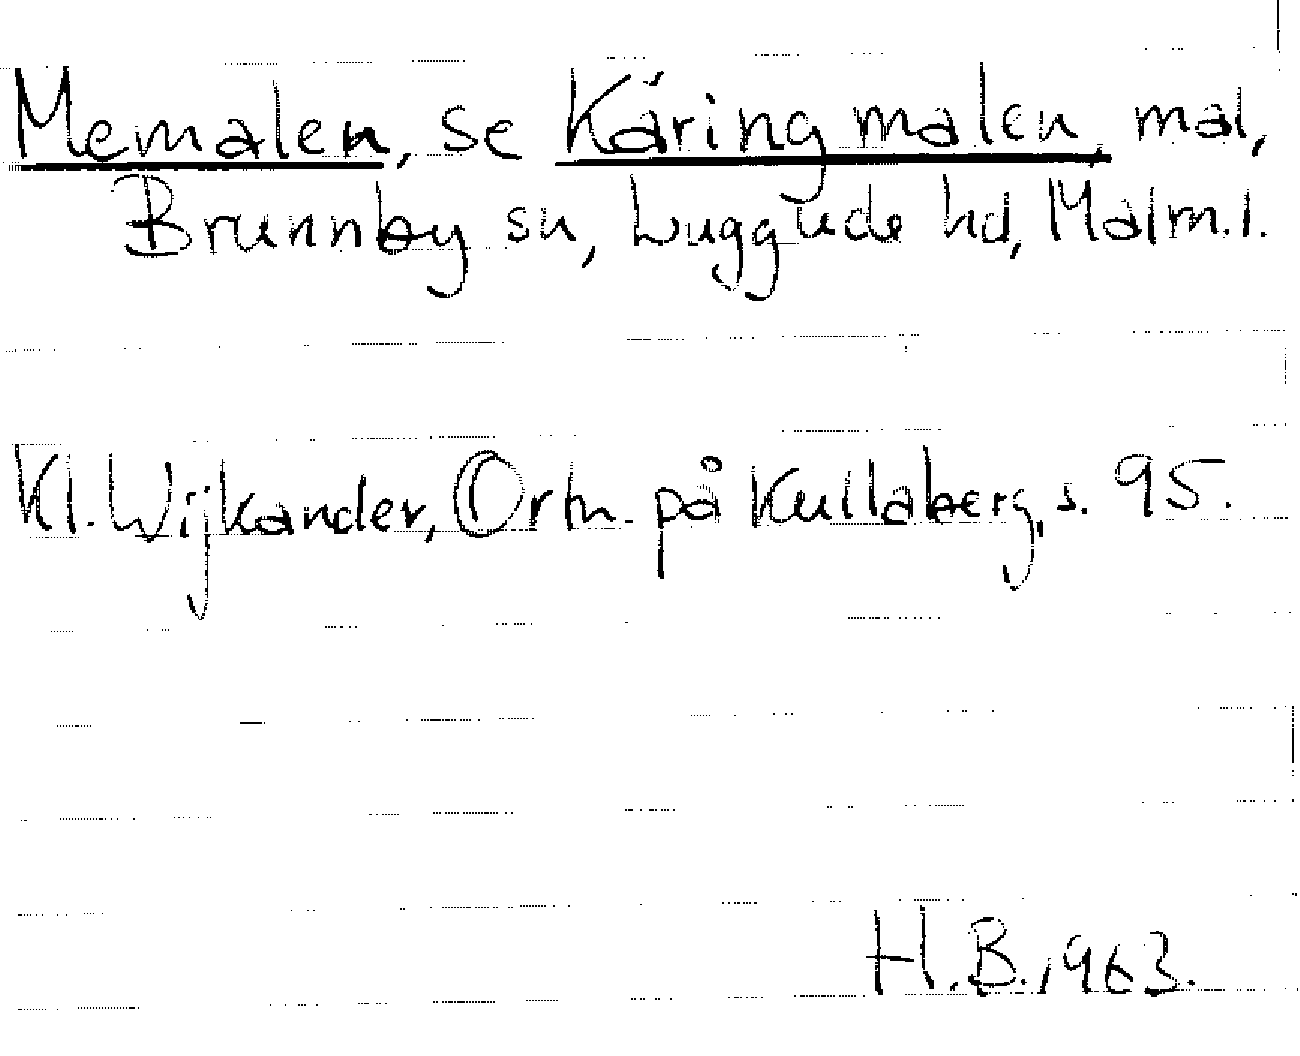 Memalen, se Käringmalen, mal,
Brunnby sn, Luggude hd, Malm.l.
Kl. Wijkander, Ortn. på Kullaberg, s. 95.
H.B. 1963.